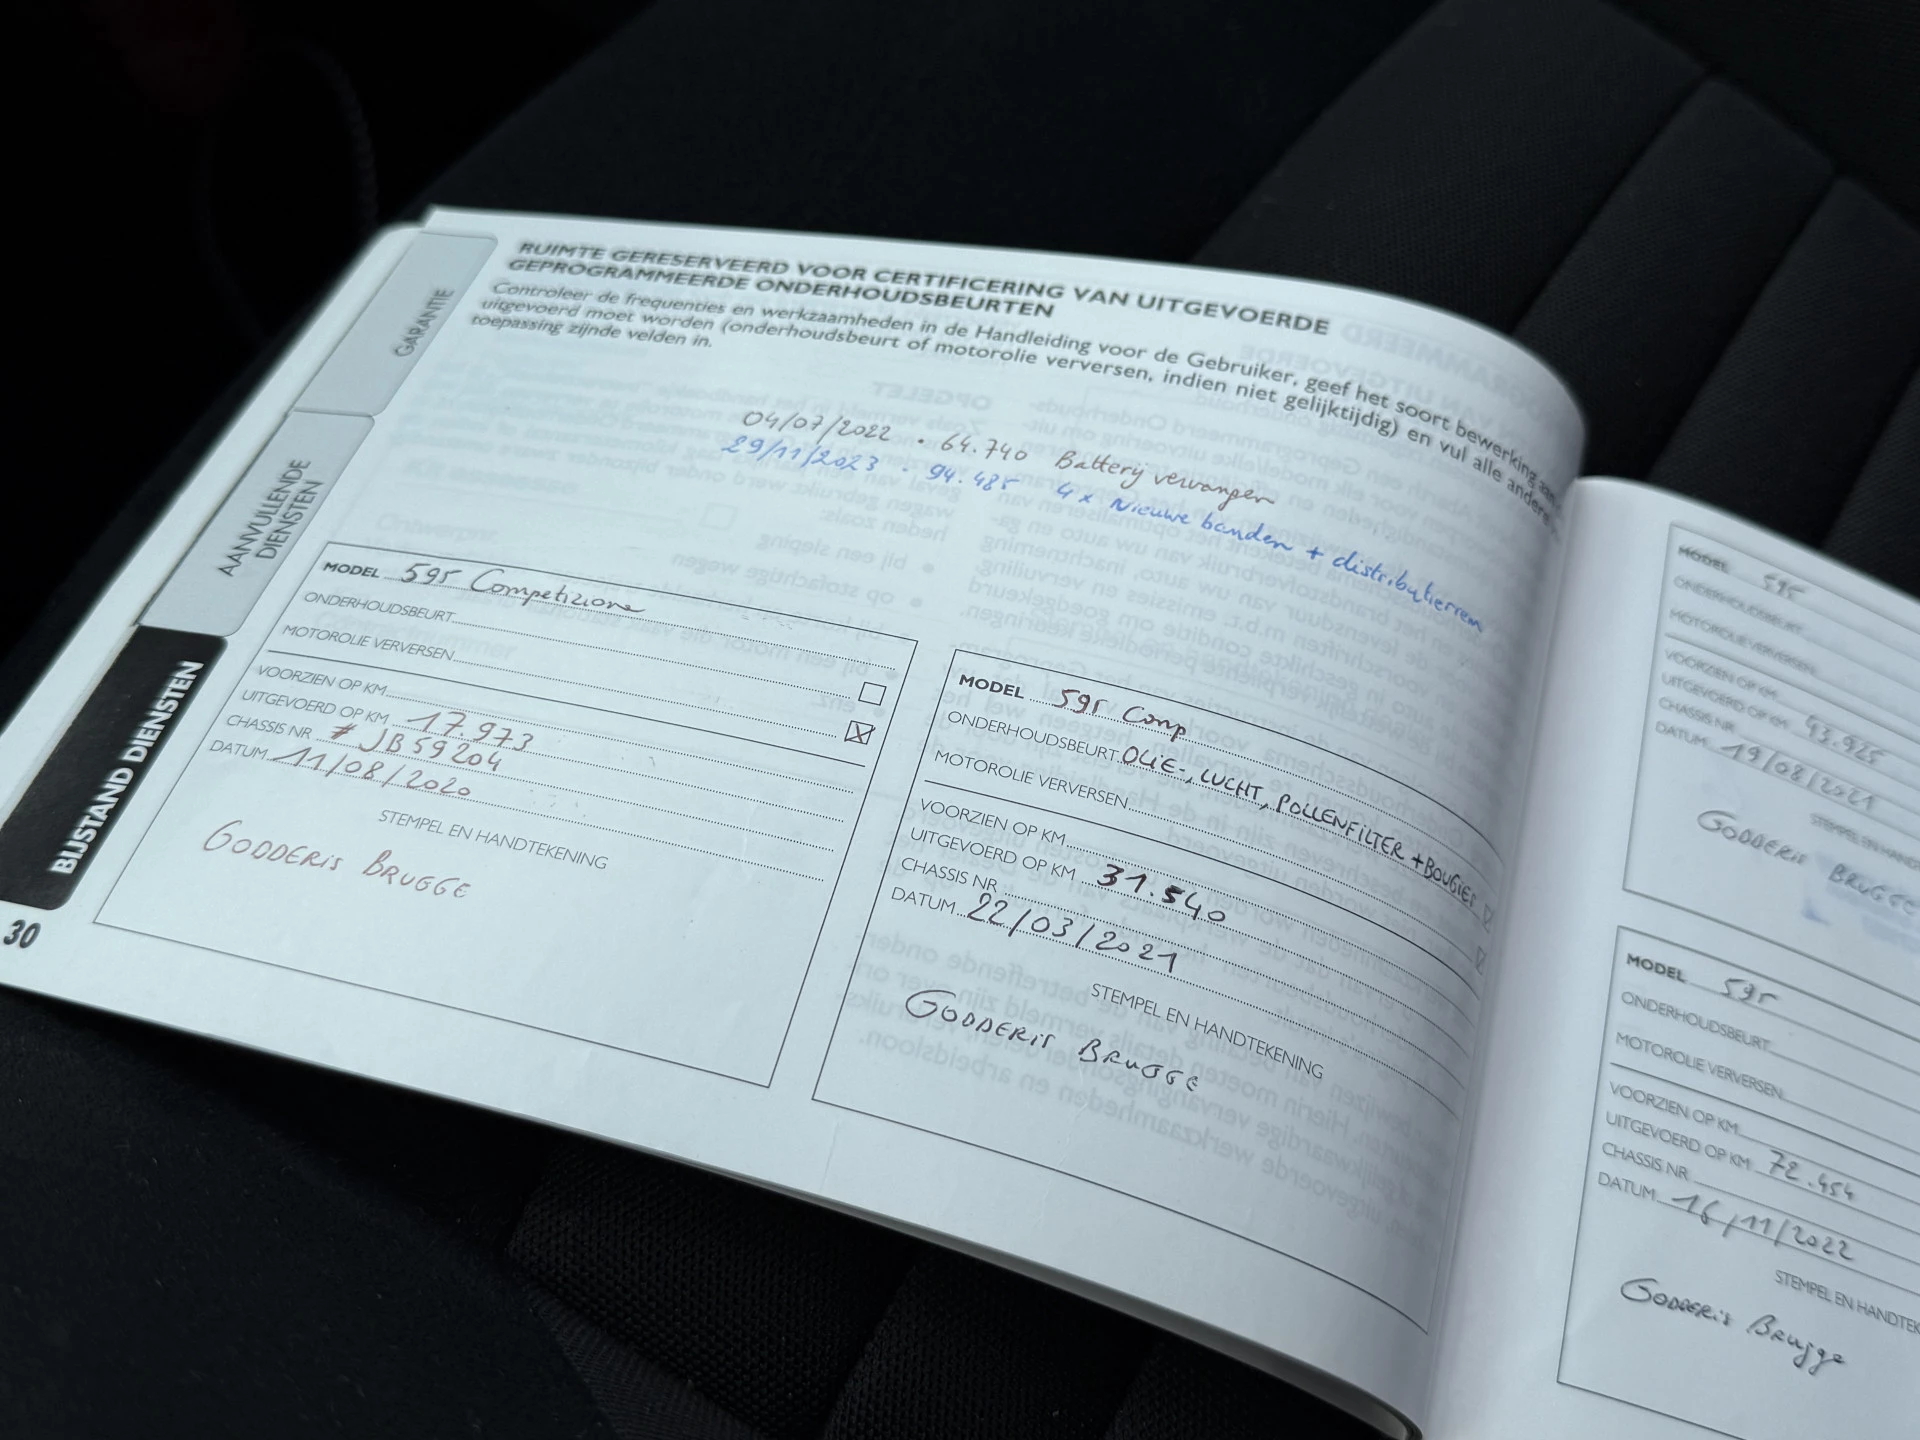 GARANTIE
AANVULLENDE
DIENSTEN
BIJSTAND DIENSTEN
30
RUIMTE GERESERVEERD VOOR CERTIFICERING VAN UITGEVOERDE
GEPROGRAMMEERDE ONDERHOUDSBEURTEN
Controleer de frequenties en werkzaamheden in de Handleiding voor de Gebruiker, geef het soort bewerking
uitgevoerd moet worden (onderhoudsbeurt of motorolie verversen, indien niet gelijktijdig) en vul alle andere
toepassing zijnde velden in.
04/07/2022 . 64.740 Batterij vervangen
29/11/2023 . 94.485 4x Nieuwe banden + distributieriem
MODEL 595 Competizione
ONDERHOUDSBEURT
MOTOROLIE VERVERSEN
VOORZIEN OP KM
UITGEVOERD OP KM 17.973
CHASSIS NR # JB59204
DATUM 11/08/2020
STEMPEL EN HANDTEKENING
GODDERIS BRUGGE
MODEL 595 Comp
ONDERHOUDSBEURT OLIE-, LUCHT, POLLENFILTER + BOUGIES
MOTOROLIE VERVERSEN
VOORZIEN OP KM
UITGEVOERD OP KM 31.540
CHASSIS NR
DATUM 22/03/2021
STEMPEL EN HANDTEKENING
GODDERIS BRUGGE
MODEL 595
ONDERHOUDSBEURT
MOTOROLIE VERVERSEN
VOORZIEN OP KM
UITGEVOERD OP KM 43.925
CHASSIS NR
DATUM 19/08/2021
STEMPEL EN HAND
GODDERIS BRUGGE
MODEL 595
ONDERHOUDSBEURT
MOTOROLIE VERVERSEN
VOORZIEN OP KM
UITGEVOERD OP KM 72.454
CHASSIS NR
DATUM 16/11/2022
STEMPEL EN HANDTEK
GODDERIS Brugge